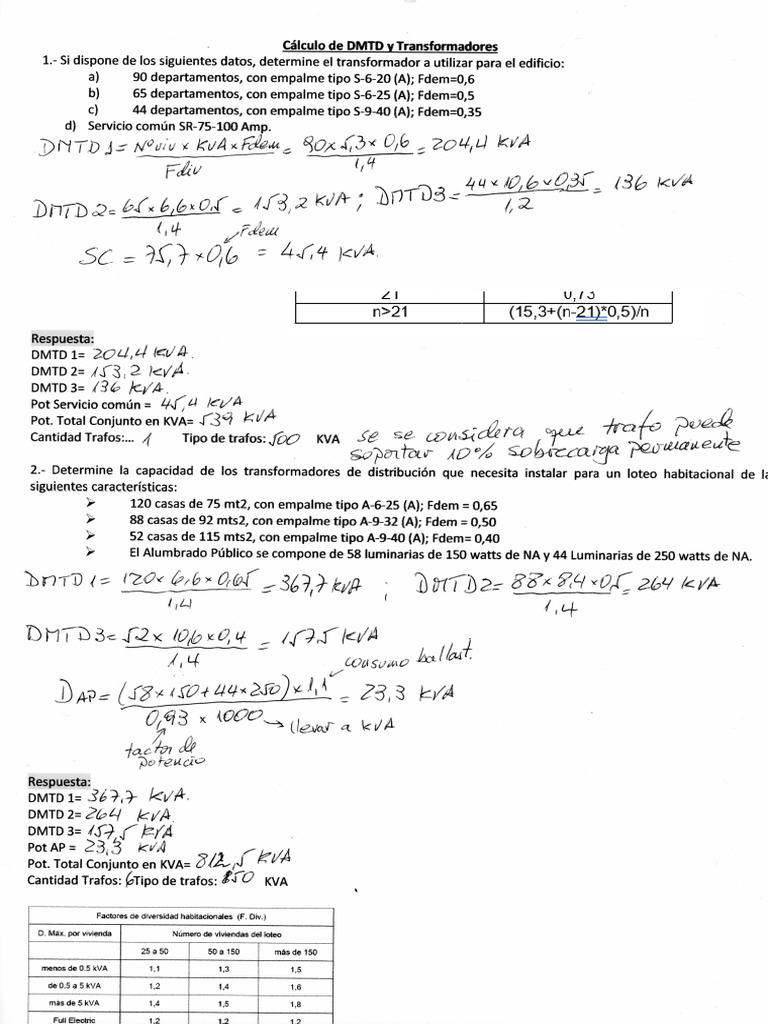 Cálculo de DMTD y Transformadores
1.- Si dispone de los siguientes datos, determine el transformador a utilizar para el edificio:
a) 90 departamentos, con empalme tipo S-6-20 (A); Fdem=0,6
b) 65 departamentos, con empalme tipo S-6-25 (A); Fdem=0,5
c) 44 departamentos, con empalme tipo S-9-40 (A); Fdem=0,35
d) Servicio común SR-75-100 Amp.
DMTD 1 = Nº viv x KVA x Fdem / Fdiv = 90 x 5,3 x 0,6 / 1,4 = 204,4 KVA
DMTD 2 = 65 x 6,6 x 0,5 / 1,4 = 153,2 KVA ; DMTD3 = 44 x 10,6 x 0,35 / 1,2 = 136 KVA
Fdem
SC = 75,7 x 0,6 = 45,4 KVA.
21 0,73
n>21 (15,3+(n-21)*0,5)/n
Respuesta:
DMTD 1= 204,4 KVA.
DMTD 2= 153,2 KVA.
DMTD 3= 136 KVA.
Pot Servicio común = 45,4 KVA
Pot. Total Conjunto en KVA= 539 KVA
Cantidad Trafos:... 1 Tipo de trafos: 500 KVA se se considera que trafo puede
soportar 10% sobrecarga permanente
2.- Determine la capacidad de los transformadores de distribución que necesita instalar para un loteo habitacional de la
siguientes características:
➢ 120 casas de 75 mt2, con empalme tipo A-6-25 (A); Fdem = 0,65
➢ 88 casas de 92 mts2, con empalme tipo A-9-32 (A); Fdem = 0,50
➢ 52 casas de 115 mts2, con empalme tipo A-9-40 (A); Fdem= 0,40
➢ El Alumbrado Público se compone de 58 luminarias de 150 watts de NA y 44 Luminarias de 250 watts de NA.
DMTD 1 = 120 x 6,6 x 0,65 / 1,4 = 367,7 KVA ; DMTD2 = 88 x 8,4 x 0,5 / 1,4 = 264 KVA
DMTD3 = 52 x 10,6 x 0,4 / 1,4 = 157,5 KVA
consumo ballast.
DAP = (58 x 150 + 44 x 250) x 1,1 / 0,93 x 1000 = 23,3 KVA
llevar a KVA
factor de
potencio
Respuesta:
DMTD 1= 367,7 KVA.
DMTD 2= 264 KVA
DMTD 3= 157,5 KVA
Pot AP = 23,3 KVA
Pot. Total Conjunto en KVA= 812,5 KVA
Cantidad Trafos: 6 Tipo de trafos: 150 KVA
Factores de diversidad habitacionales (F. Div.)
D. Máx. por vivienda Número de viviendas del loteo
25 a 50 50 a 150 más de 150
menos de 0.5 kVA 1,1 1,3 1,5
de 0.5 a 5 kVA 1,2 1,4 1,6
más de 5 kVA 1,4 1,5 1,8
Full Electric 1,2 1,2 1,2